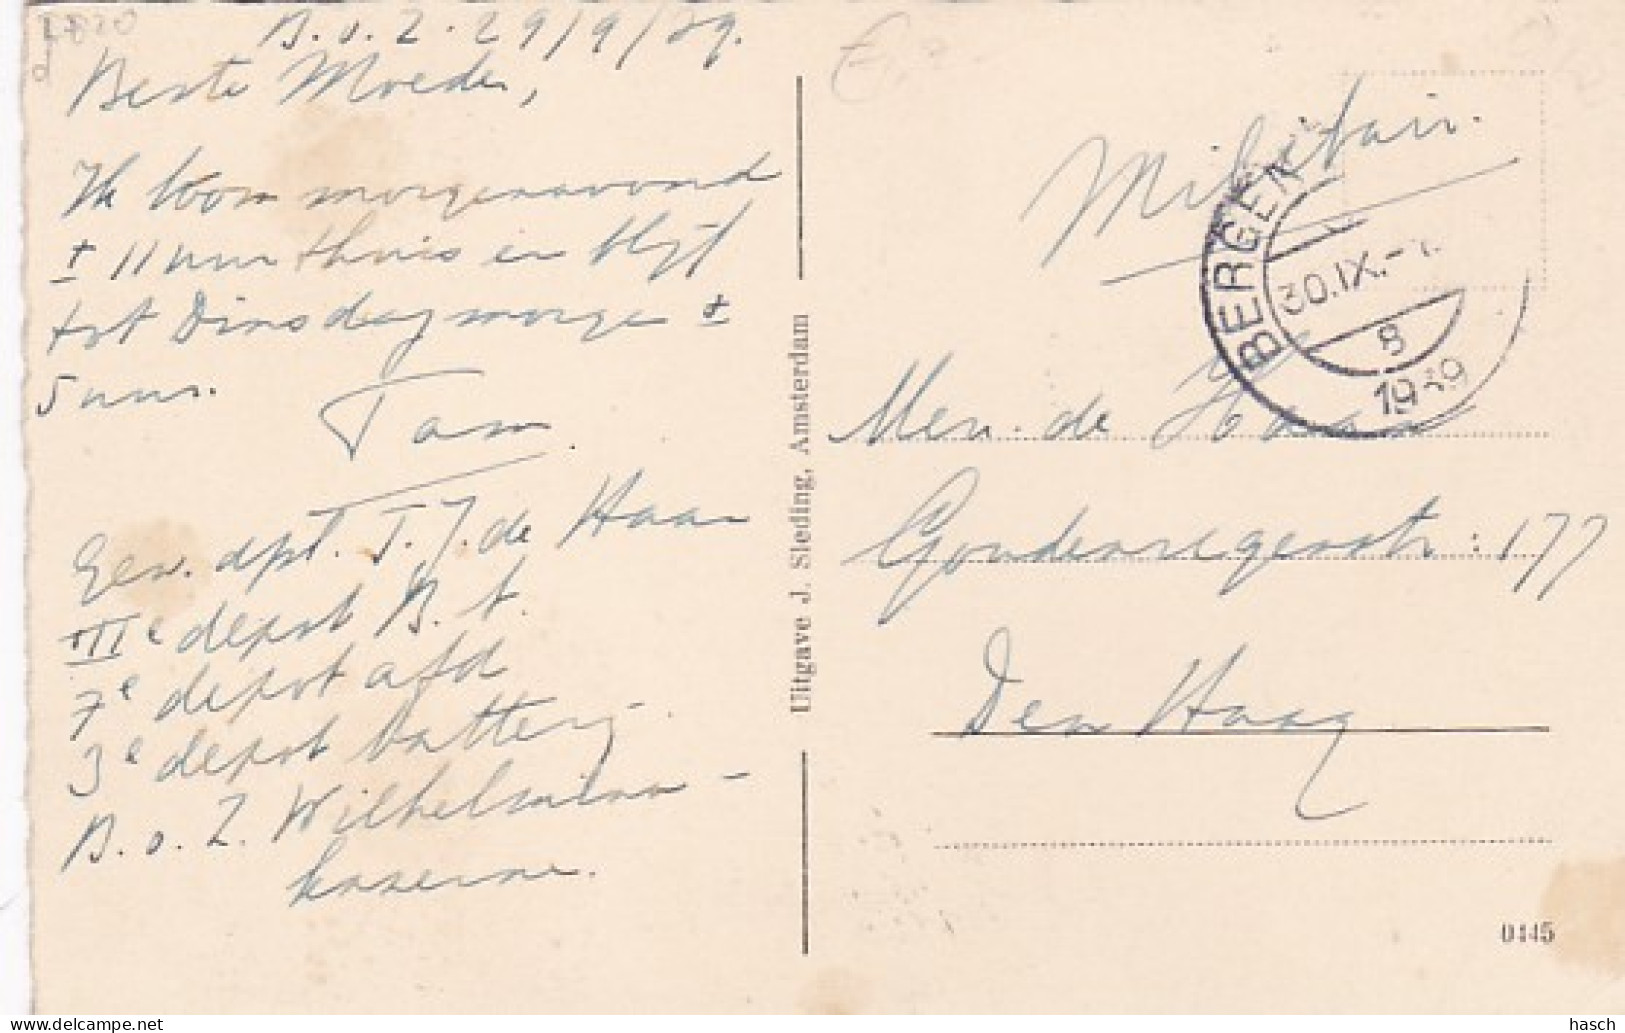 B.o.Z. 29/9/39.
Beste Moeder,
Ik kom morgenavond
± 11 uur thuis en blijf
tot Dinsdagmorge ±
5 uur.
Tom.
Gew. dpt. T. J. de Haan
IIIe depot B. A.
7e depot afd
3e depot batterij.
B.o.Z. Wilhelmina-
kazerne.
Uitgave J. Sleding, Amsterdam
Militair.
BERGEN
30.IX.
8
Mev. de Haan
Goudenregenstr: 177
Den Haag
0445
hasch
www.delcampe.net